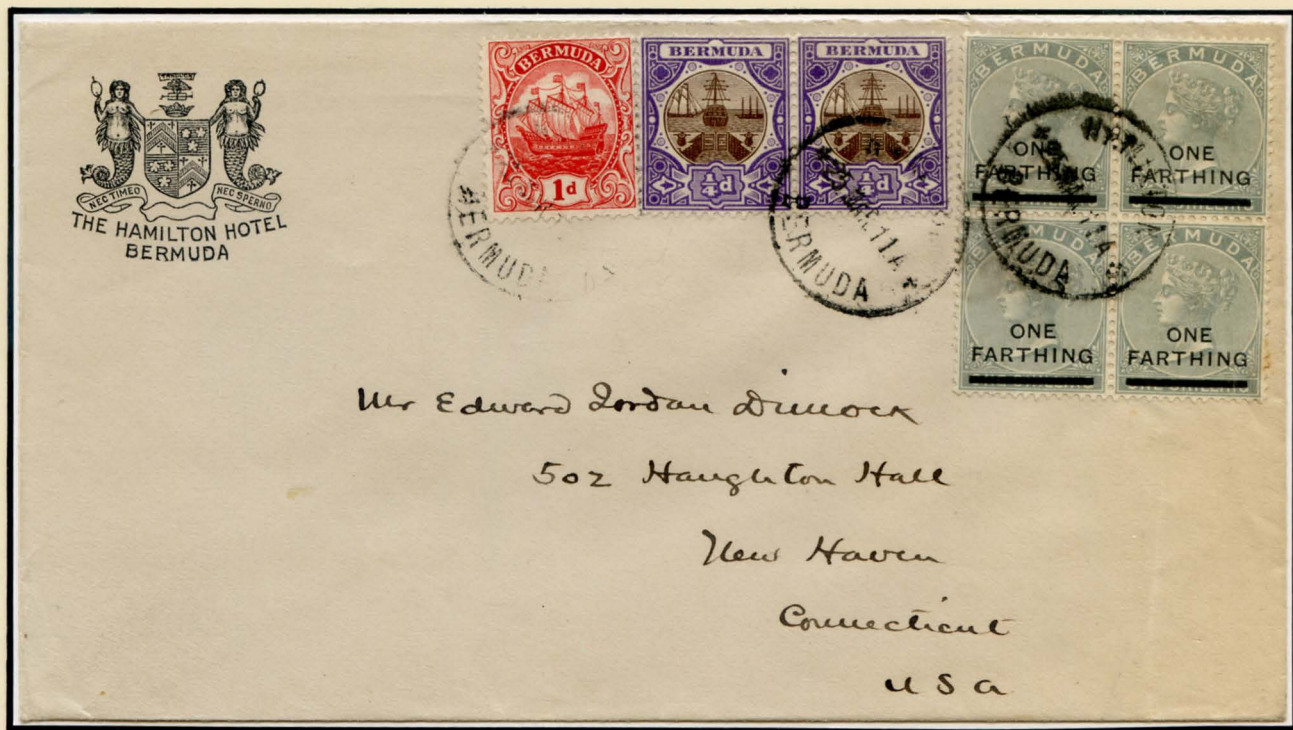 NEC TIMEO NEC SPERNO
THE HAMILTON HOTEL
BERMUDA
BERMUDA
1d
BERMUDA
¼d
BERMUDA
¼d
BERMUDA
ONE
FARTHING
BERMUDA
ONE
FARTHING
BERMUDA
ONE
FARTHING
BERMUDA
ONE
FARTHING
BERMUDA
BERMUDA
HAMILTON
BERMUDA
Mr Edward Jordan Dimock
502 Haughton Hall
New Haven
Connecticut
U S a